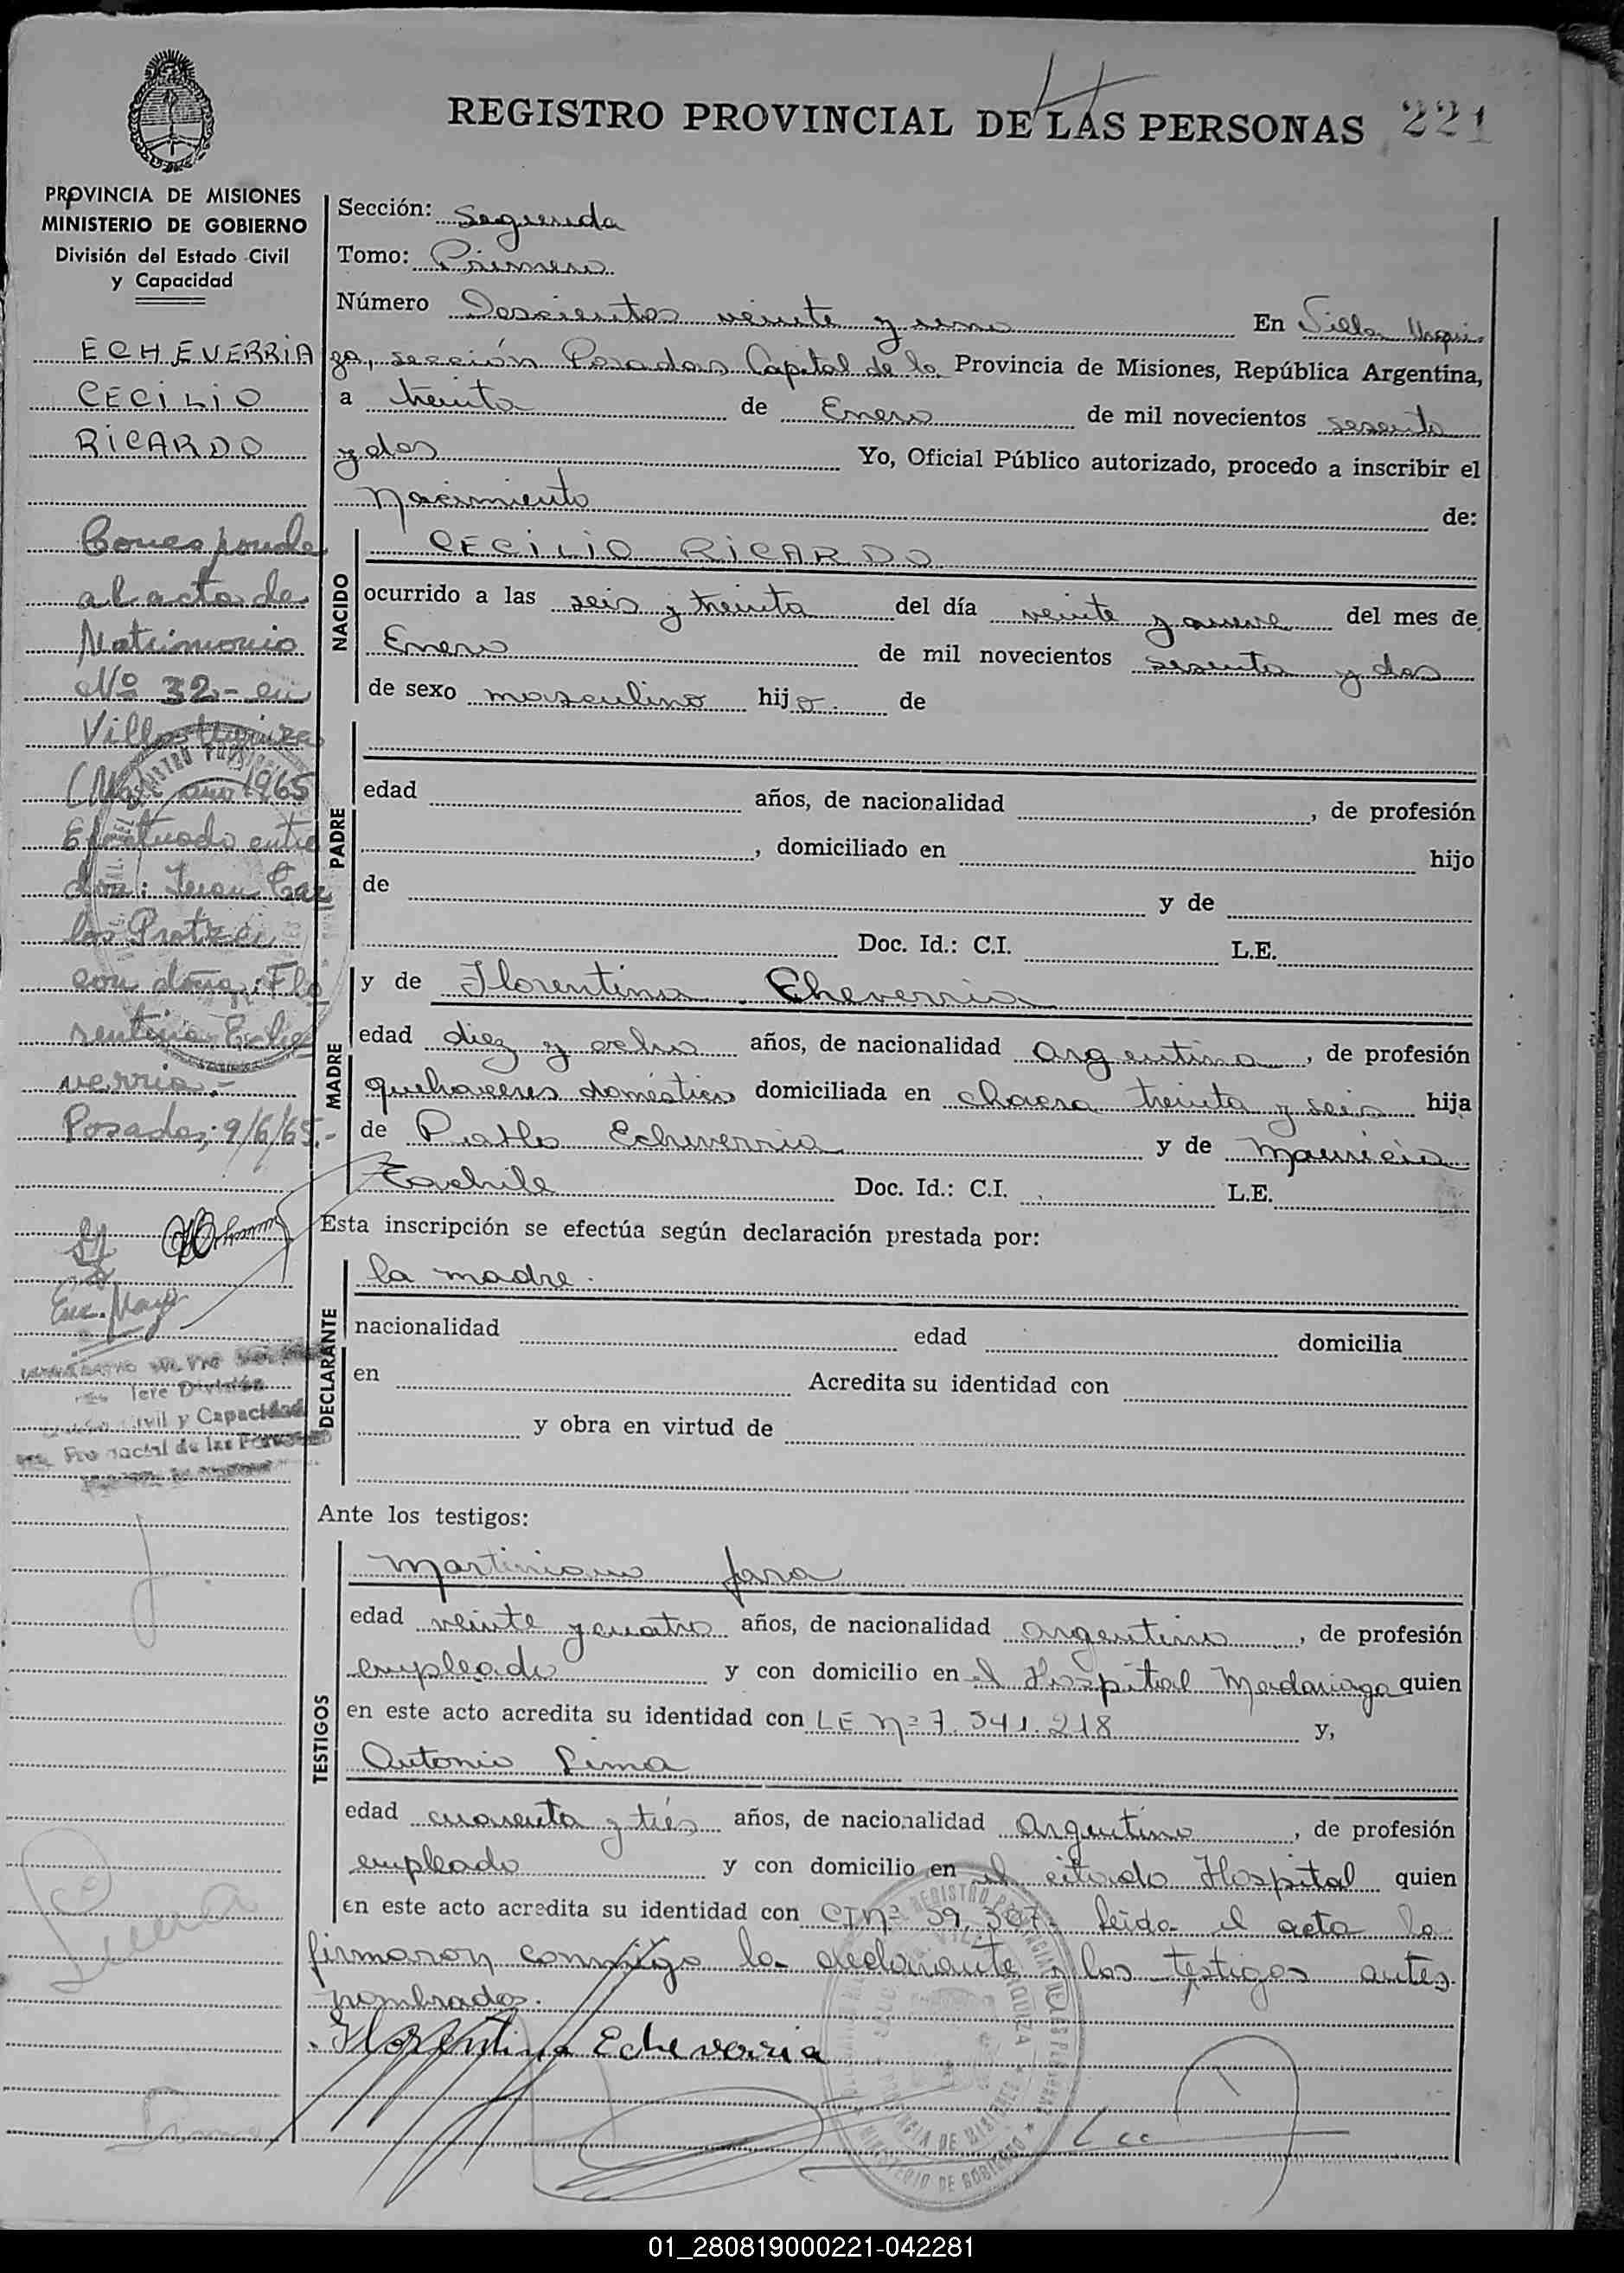 REGISTRO PROVINCIAL DE LAS PERSONAS 221
PROVINCIA DE MISIONES
MINISTERIO DE GOBIERNO
División del Estado Civil
y Capacidad
ECHEVERRIA
CECILIO
RICARDO
Corresponde
al acta de
Matrimonio
Nº 32.- en
Villa Urquiza
(Mnes) año 1965
Efectuado entre
don: Juan Car
los
con doña: Flo
rentina Eche
verria.-
Posadas, 9/6/65.-
Jefe División
Civil y Capacidad
Sección: Segunda
Tomo: Primero
Número Doscientos veinte y uno En Villa Urqui-
za, sección Posadas Capital de la Provincia de Misiones, República Argentina,
a treinta de Enero de mil novecientos sesenta
y dos Yo, Oficial Público autorizado, procedo a inscribir el
Nacimiento de:
NACIDO
CECILIO RICARDO
ocurrido a las seis y treinta del día veinte y nueve del mes de
Enero de mil novecientos sesenta y dos
de sexo masculino hijo. de
PADRE
edad años, de nacionalidad , de profesión
, domiciliado en hijo
de y de
Doc. Id.: C.I. L.E.
MADRE
y de Florentina Echeverria
edad diez y ocho años, de nacionalidad argentina, de profesión
quehaceres domésticos domiciliada en chacra treinta y seis hija
de Echeverria y de Mauricia
Doc. Id.: C.I. L.E.
Esta inscripción se efectúa según declaración prestada por:
DECLARANTE
la madre.
nacionalidad edad domicilia
en Acredita su identidad con
y obra en virtud de
Ante los testigos:
TESTIGOS
Martiniano Jara
edad veinte y cuatro años, de nacionalidad argentino, de profesión
empleado y con domicilio en el Hospital Madariaga quien
en este acto acredita su identidad con LE Nº 7.541.218 y,
Antonio Lima
edad cuarenta y tres años, de nacionalidad Argentino, de profesión
empleado y con domicilio en el citado Hospital quien
en este acto acredita su identidad con CI Nº 59.387. Leida el acta la
firmaron conmigo la declarante y los testigos antes
nombrados.
Florentina Echeverria
01_280819000221-042281